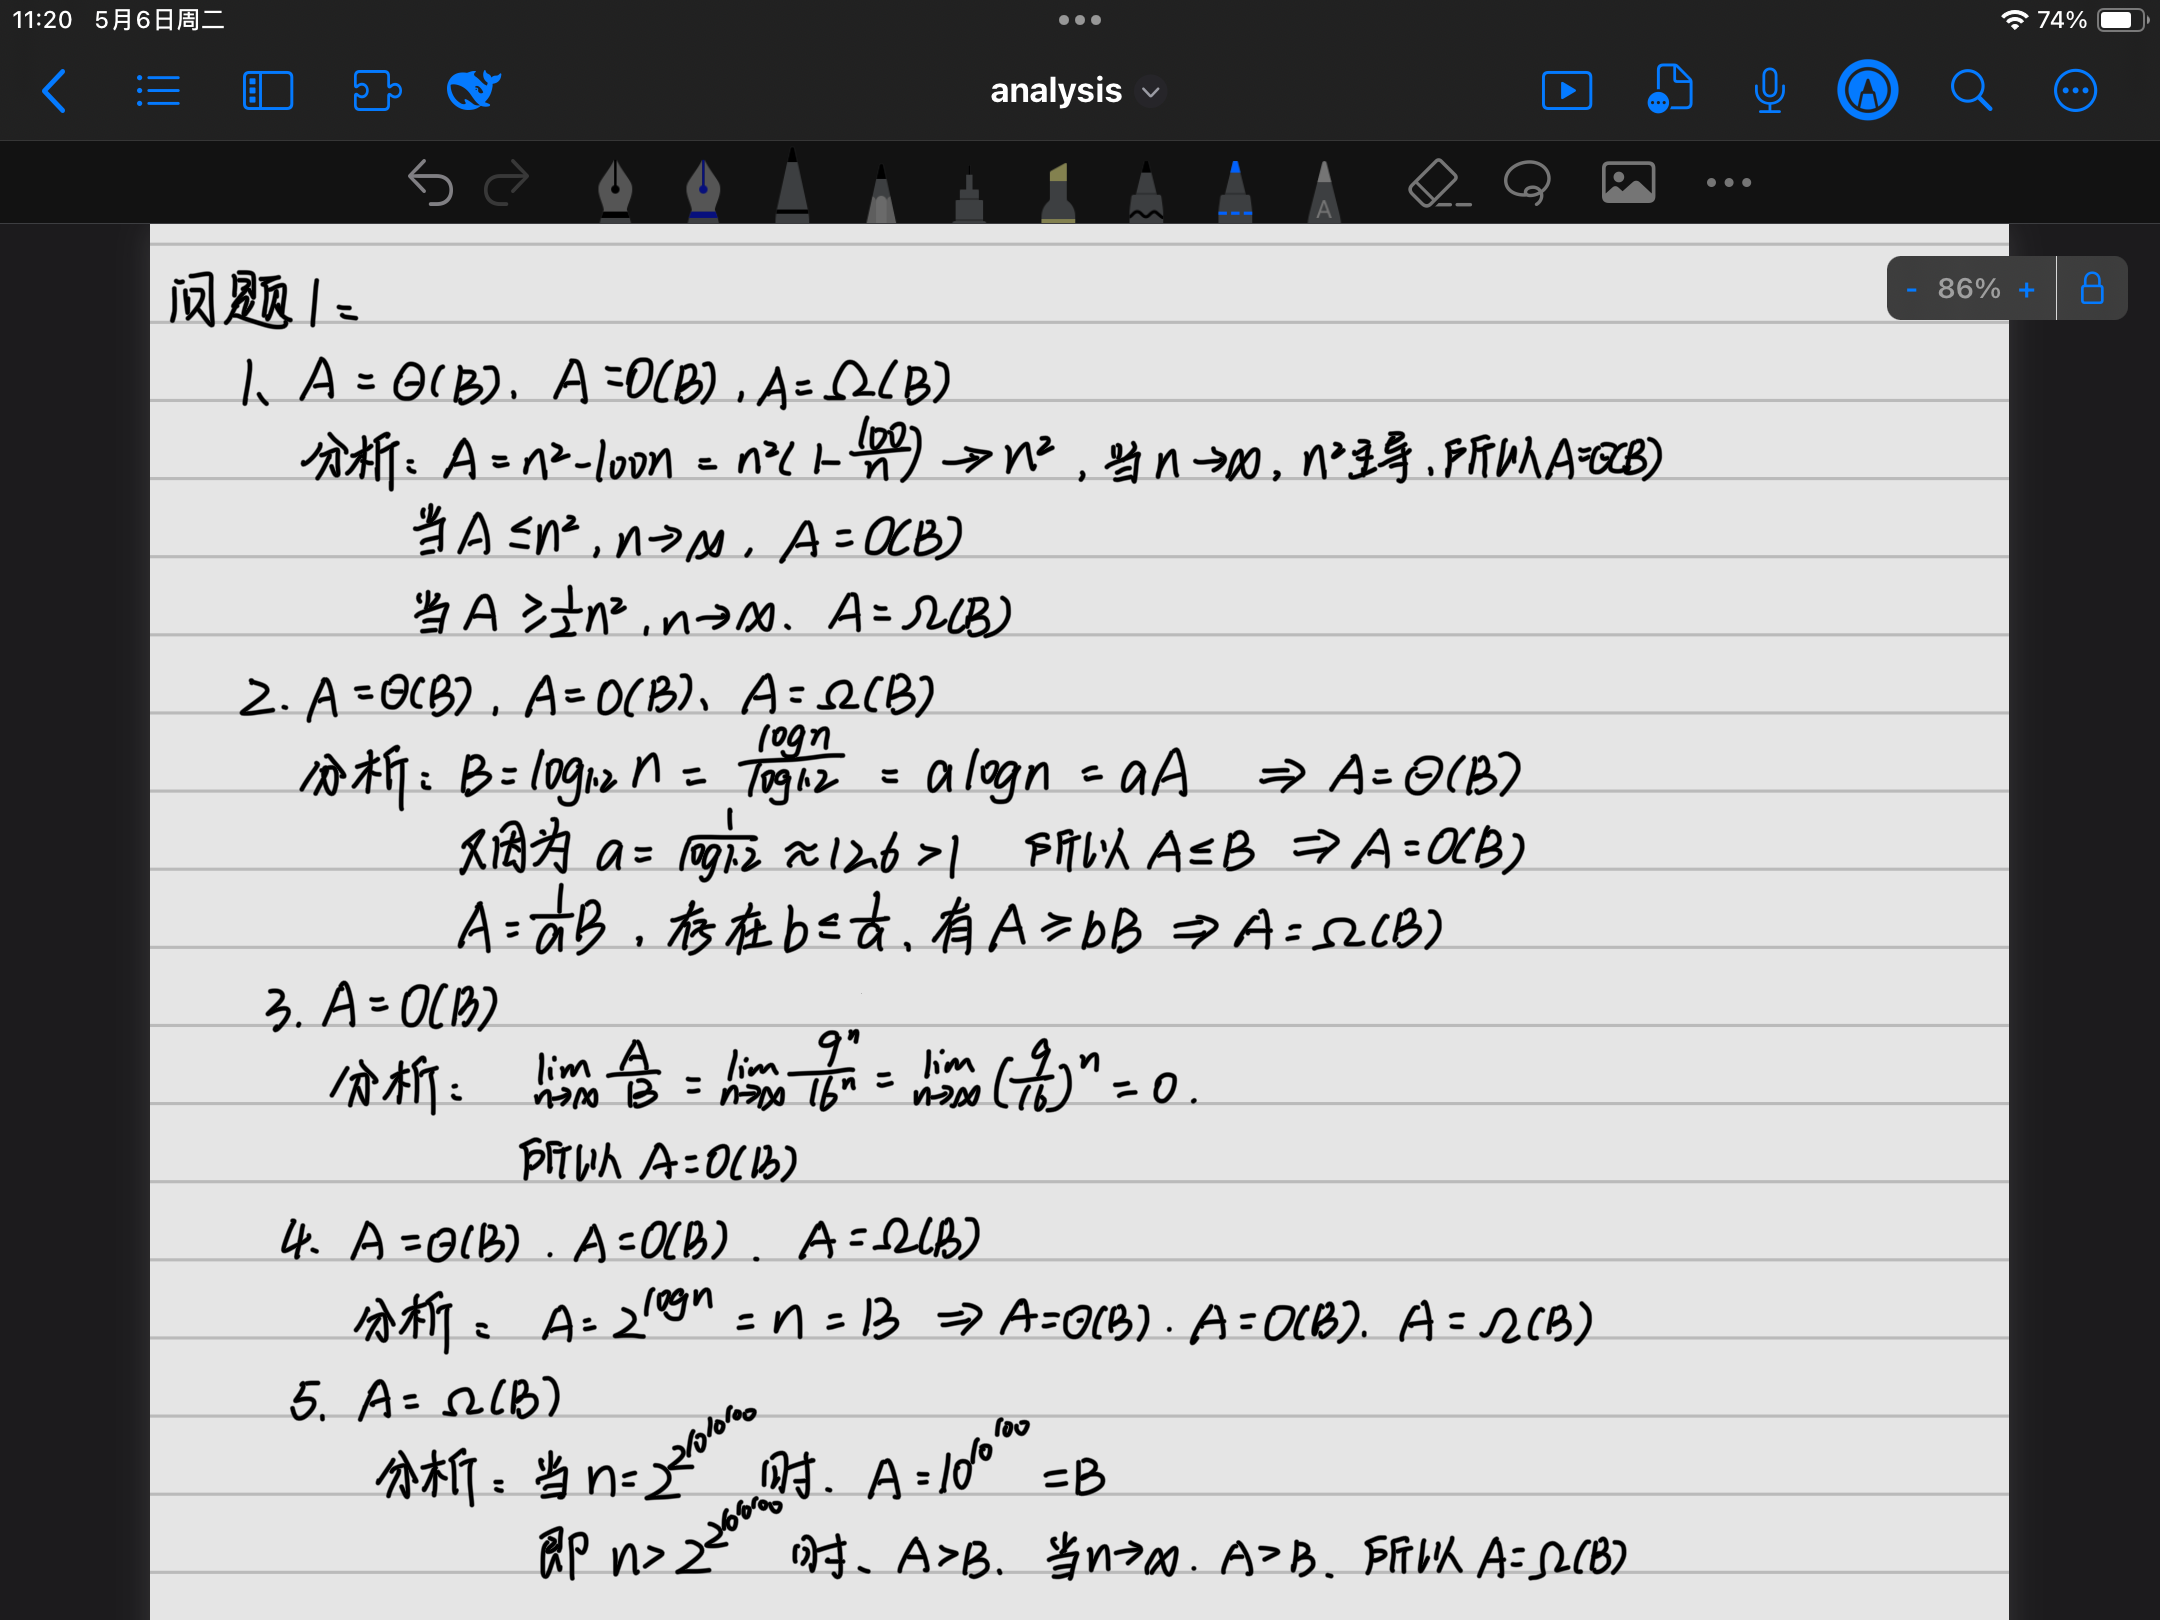 11:20 5月6日周二
74%
analysis
A
- 86% +
问题1:
1、A = Θ(B), A = O(B), A = Ω(B)
分析: A = n² - 100n = n²(1 - 100/n) → n², 当 n → ∞, n²主导, 所以 A = Θ(B)
当 A ≤ n², n → ∞, A = O(B)
当 A ≥ 1/2 n², n → ∞. A = Ω(B)
2. A = Θ(B), A = O(B)、A = Ω(B)
分析: B = log₁.₂ n = logn/log1.2 = a logn = aA ⇒ A = Θ(B)
又因为 a = 1/log1.2 ≈ 12.6 > 1 所以 A ≤ B ⇒ A = O(B)
A = 1/a B, 存在 b ≤ 1/a, 有 A ≥ bB ⇒ A = Ω(B)
3. A = O(B)
分析: lim n→∞ A/B = lim n→∞ 9ⁿ/16ⁿ = lim n→∞ (9/16)ⁿ = 0.
所以 A = O(B)
4. A = Θ(B). A = O(B). A = Ω(B)
分析: A = 2^logn = n = B ⇒ A = Θ(B). A = O(B). A = Ω(B)
5. A = Ω(B)
分析: 当 n = 2^2^10^10^100 时. A = 10^10^100 = B
即 n > 2^2^10^10^100 时、A > B. 当 n → ∞. A > B. 所以 A = Ω(B)